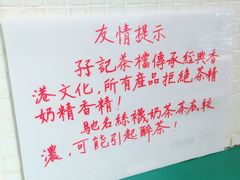 友情提示
孖記茶檔傳承經典香
港文化,所有産品拒絶茶精
奶精香精!
馳名絲襪奶茶茶底較
濃,可能引起醉茶!